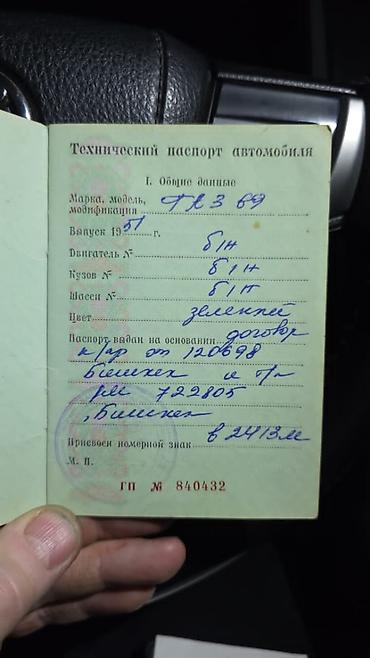 Технический паспорт автомобиля
I. Общие данные
Марка, модель,
модификация ГАЗ 69
Выпуск 1951 г.
Двигатель № б/н
Кузов № б/н
Шасси № б/н
Цвет зеленый
Паспорт выдан на основании договор
к/пр от 120698
Бишкек и т/п
рм 722805
Бишкек
Присвоен номерной знак В2413М
М. П.
ГП № 840432